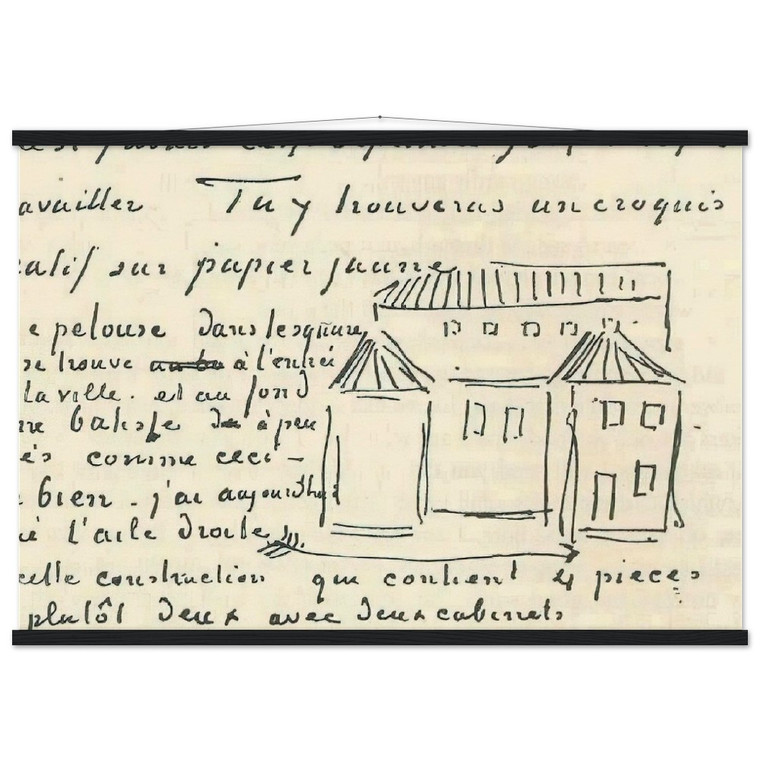 availler Tu y trouveras un croquis
atif sur papier jaune
e pelouse dans lesquare
se trouve à l'entrée
la ville. et au fond
ne batisse à peu
és comme ceci —
bien. j'ai aujourdhui
é l'aile droite
cette construction qui contient 4 pieces
plutôt deux avec deux cabinets